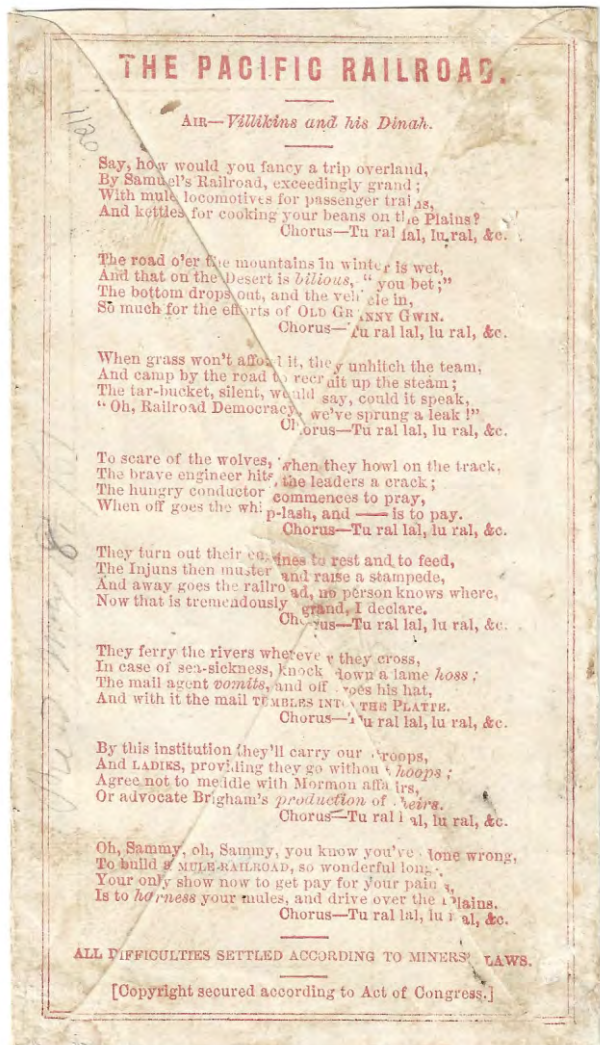 THE PACIFIC RAILROAD.
AIR—Villikins and his Dinah.
1120
Say, how would you fancy a trip overland,
By Samuel's Railroad, exceedingly grand;
With mule locomotives for passenger trains,
And kettles for cooking your beans on the Plains?
Chorus—Tu ral lal, lu ral, &c.
The road o'er the mountains in winter is wet,
And that on the Desert is bilious, "you bet;"
The bottom drops out, and the vehicle in,
So much for the efforts of OLD GRANNY GWIN.
Chorus—Tu ral lal, lu ral, &c.
When grass won't afford it, they unhitch the team,
And camp by the road to recruit up the steam;
The tar-bucket, silent, would say, could it speak,
"Oh, Railroad Democracy, we've sprung a leak!"
Chorus—Tu ral lal, lu ral, &c.
To scare of the wolves, when they howl on the track,
The brave engineer hits, the leaders a crack;
The hungry conductor commences to pray,
When off goes the whip-lash, and —— is to pay.
Chorus—Tu ral lal, lu ral, &c.
They turn out their engines to rest and to feed,
The Injuns then muster and raise a stampede,
And away goes the railroad, no person knows where,
Now that is tremendously grand, I declare.
Chorus—Tu ral lal, lu ral, &c.
They ferry the rivers wherever they cross,
In case of sea-sickness, knock down a lame hoss;
The mail agent vomits, and off goes his hat,
And with it the mail TUMBLES INTO THE PLATTE.
Chorus—Tu ral lal, lu ral, &c.
By this institution they'll carry our troops,
And LADIES, providing they go without hoops;
Agree not to meddle with Mormon affairs,
Or advocate Brigham's production of heirs.
Chorus—Tu ral lal, lu ral, &c.
Oh, Sammy, oh, Sammy, you know you've done wrong,
To build a MULE-RAILROAD, so wonderful long,
Your only show now to get pay for your pains,
Is to harness your mules, and drive over the Plains.
Chorus—Tu ral lal, lu ral, &c.
ALL DIFFICULTIES SETTLED ACCORDING TO MINERS' LAWS.
[Copyright secured according to Act of Congress.]